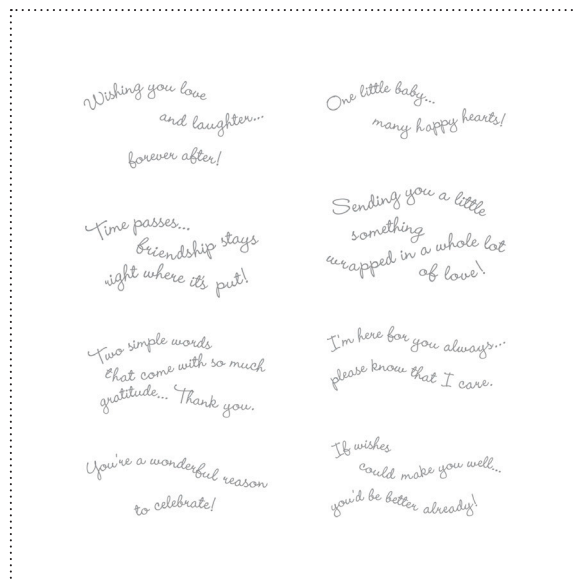 Wishing you love
and laughter...
forever after!
Time passes...
friendship stays
right where it's put!
Two simple words
that come with so much
gratitude... Thank you.
You're a wonderful reason
to celebrate!
One little baby...
many happy hearts!
Sending you a little
something
wrapped in a whole lot
of love!
I'm here for you always...
please know that I care.
If wishes
could make you well...
you'd be better already!